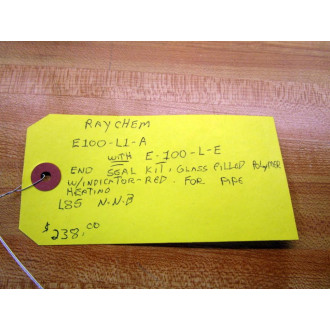 RAYCHEM
E100-L1-A
WITH E-100-L-E
END SEAL KIT, GLASS FILLED POLYMER
W/INDICATOR-RED. FOR PIPE
HEATING
L85 N.N.B
$238.00